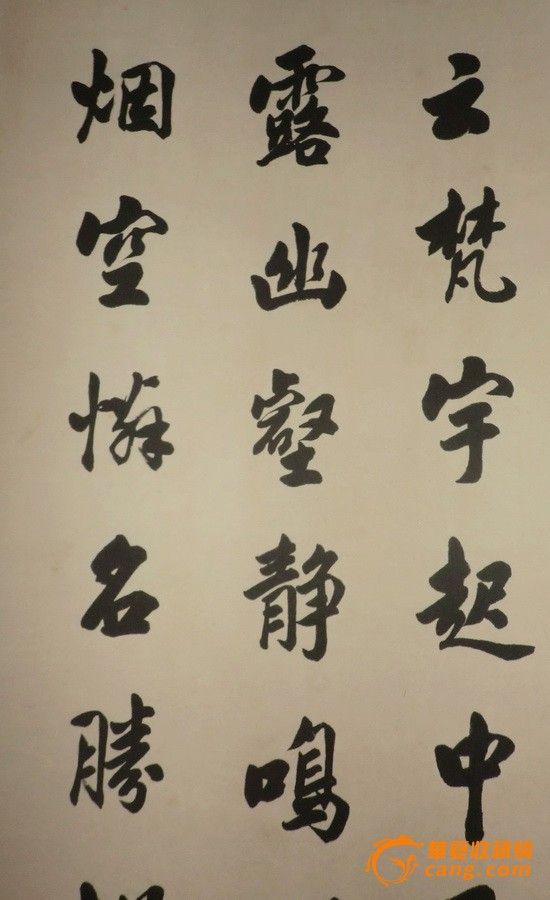 云梵宇起中
露幽壑静鳴
烟空憐名勝
華夏收藏網
cang.com